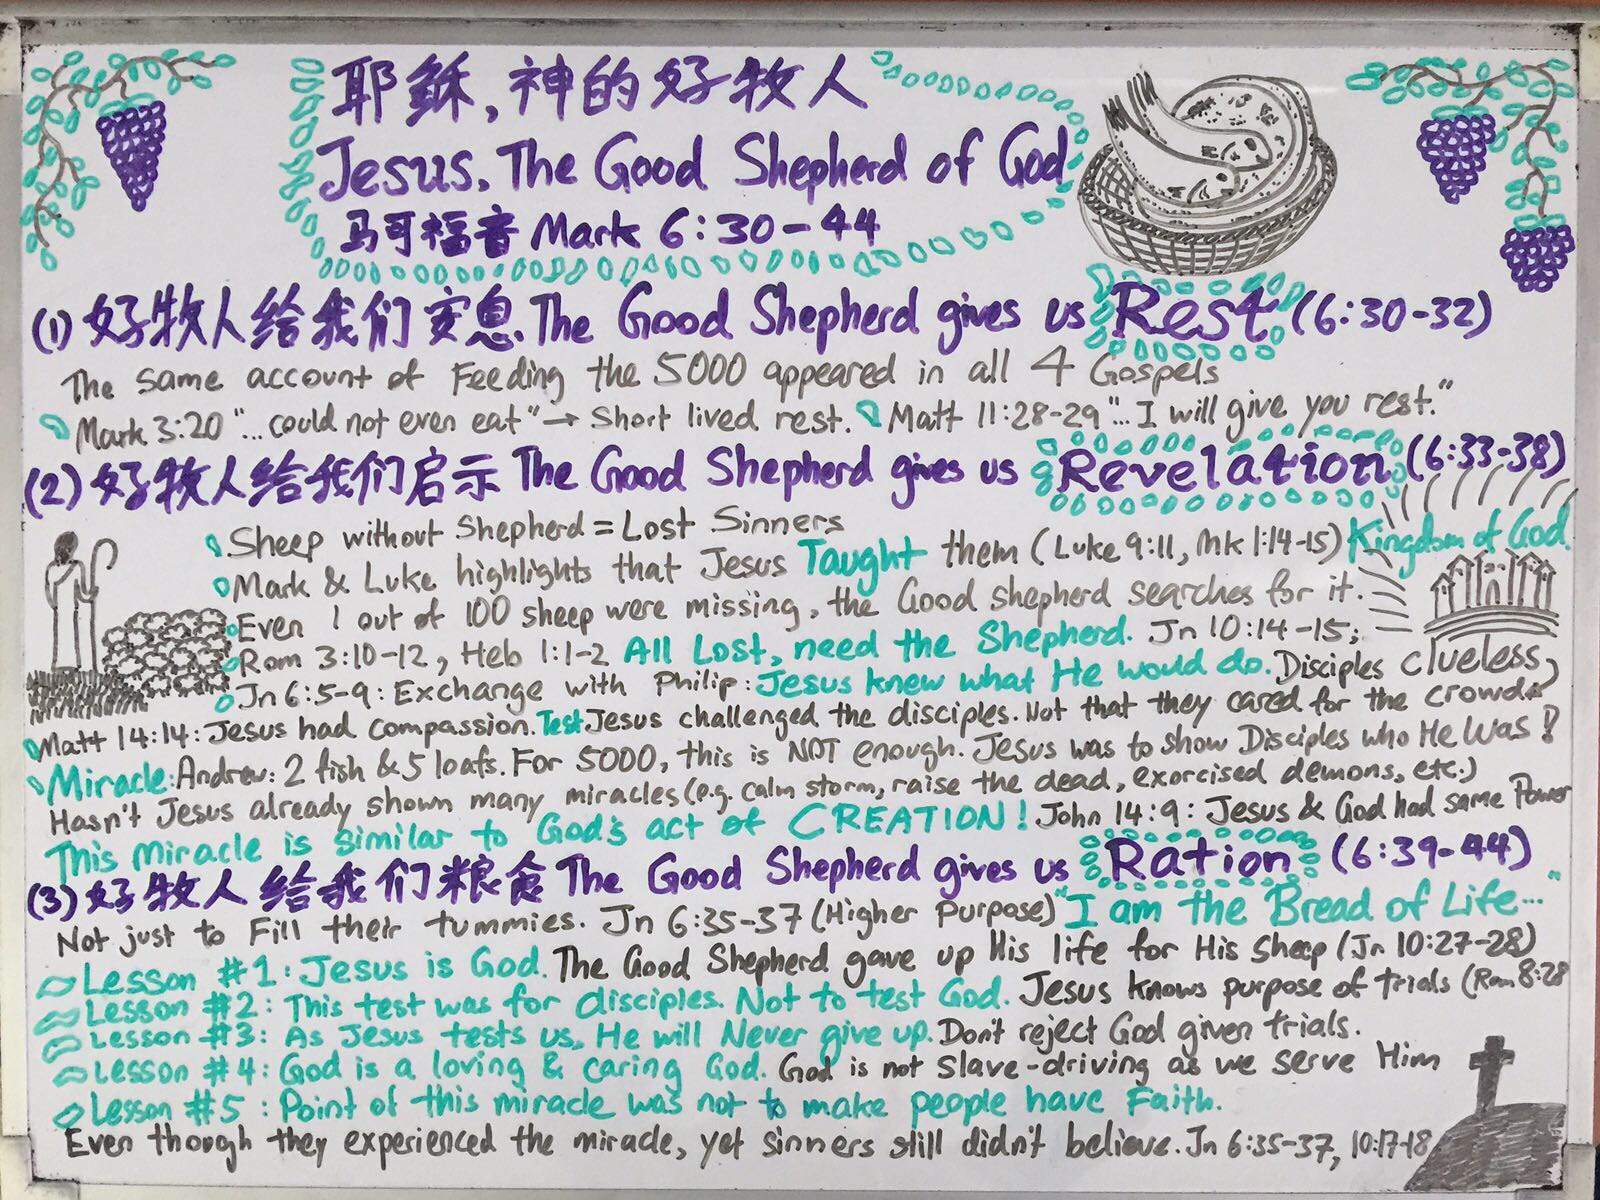 耶稣,神的好牧人
Jesus, The Good Shepherd of God
马可福音 Mark 6:30-44
(1) 好牧人给我们安息. The Good Shepherd gives us Rest (6:30-32)
The same account of Feeding the 5000 appeared in all 4 Gospels
Mark 3:20 "...could not even eat" → Short lived rest. Matt 11:28-29 "...I will give you rest."
(2) 好牧人给我们启示 The Good Shepherd gives us Revelation (6:33-38)
Sheep without Shepherd = Lost Sinners
Mark & Luke highlights that Jesus Taught them (Luke 9:11, Mk 1:14-15) Kingdom of God.
Even 1 out of 100 sheep were missing, the Good shepherd searches for it.
Rom 3:10-12, Heb 1:1-2 All Lost, need the Shepherd. Jn 10:14-15;
Jn 6:5-9: Exchange with Philip: Jesus knew what He would do. Disciples clueless,
Matt 14:14: Jesus had compassion. Test Jesus challenged the disciples. Not that they cared for the crowds,
Miracle: Andrew: 2 fish & 5 loafs. For 5000, this is NOT enough. Jesus was to show Disciples who He Was!
Hasn't Jesus already shown many miracles (e.g. calm storm, raise the dead, exorcised demons, etc.)
This Miracle is similar to God's act of CREATION! John 14:9: Jesus & God had same Power
(3) 好牧人给我们粮食 The Good Shepherd gives us Ration (6:39-44)
Not just to Fill their tummies. Jn 6:35-37 (Higher Purpose) "I am the Bread of Life..."
Lesson #1: Jesus is God. The Good Shepherd gave up His life for His Sheep (Jn 10:27-28)
Lesson #2: This test was for disciples. Not to test God. Jesus knows purpose of trials (Rom 8:28
Lesson #3: As Jesus tests us, He will Never give up. Don't reject God given trials.
Lesson #4: God is a loving & caring God. God is not slave-driving as we serve Him
Lesson #5: Point of this miracle was not to make people have Faith.
Even though they experienced the miracle, yet sinners still didn't believe. Jn 6:35-37, 10:17-18